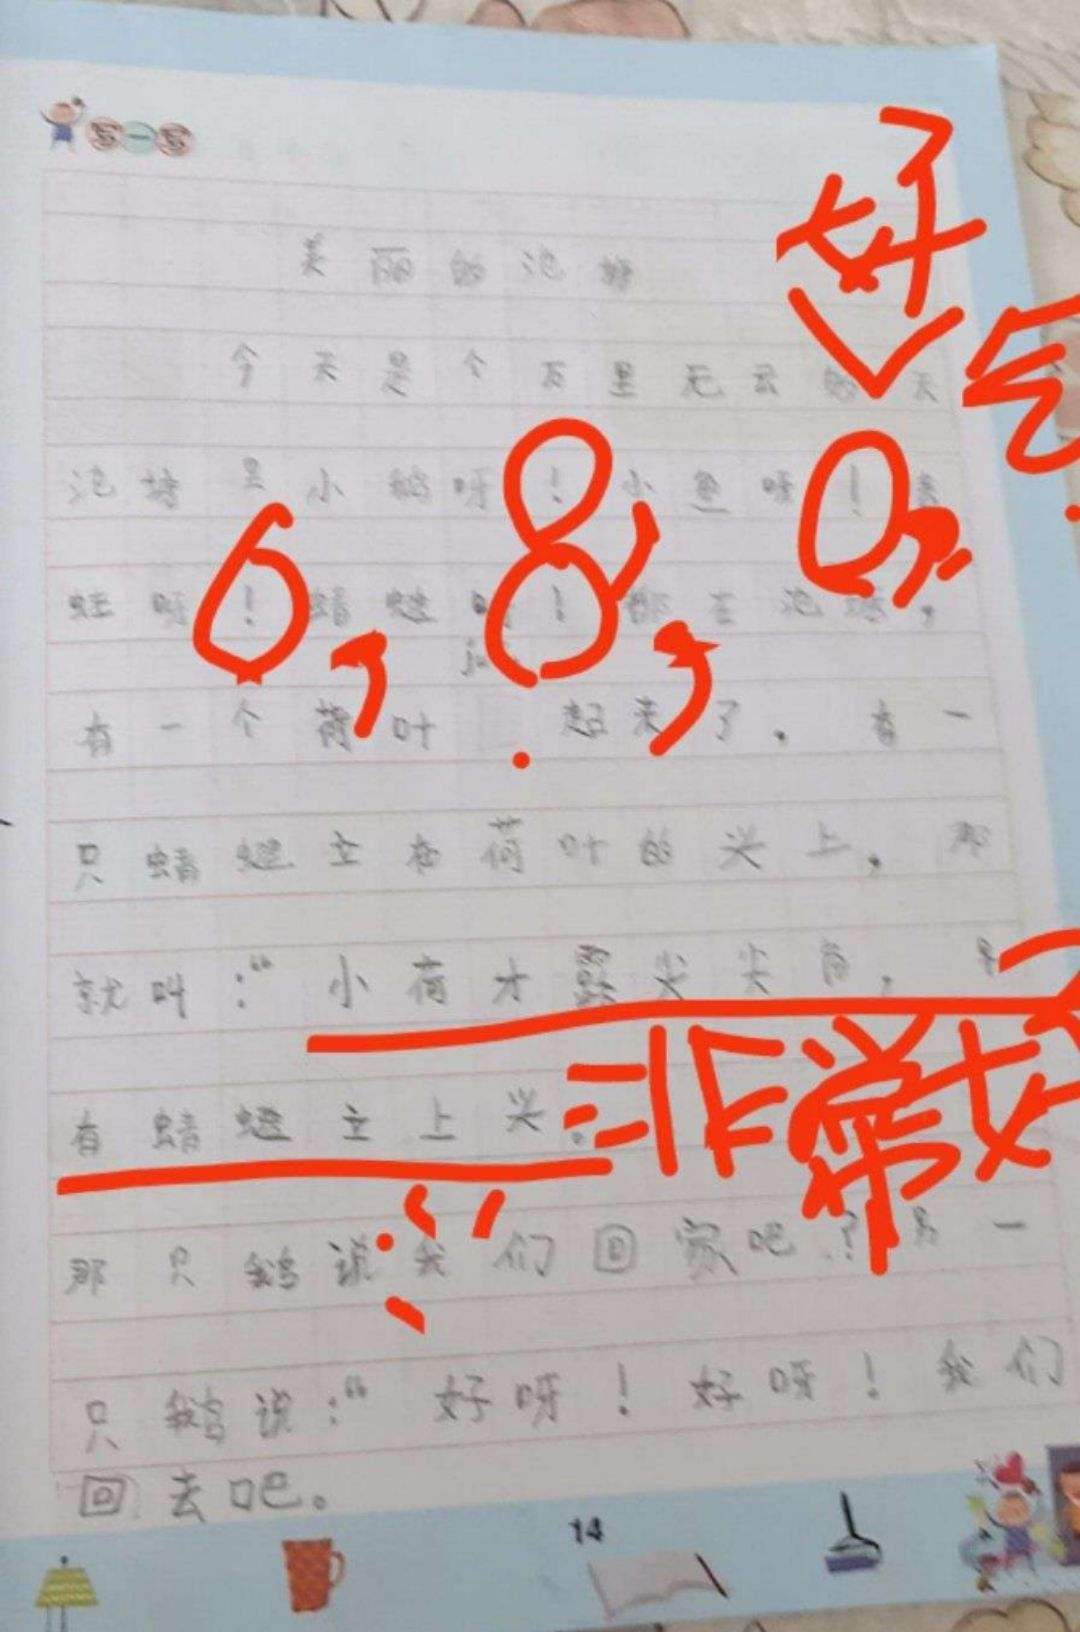 写一写
美丽的池塘
好
今天是个万里无云的天
气.
池塘里小鹅呀！小鱼呀！青
，
蛙呀！蜻蜓呀！都在池塘，
， ，
ju
有一个荷叶 起来了．有一
只蜻蜓立在荷叶的尖上．那
就叫：“小荷才露尖尖角，早
有蜻蜓立上头。
非常好
那只鹅说我们回家吧？另一
只鹅说：“好呀！好呀！我们
回去吧。
14